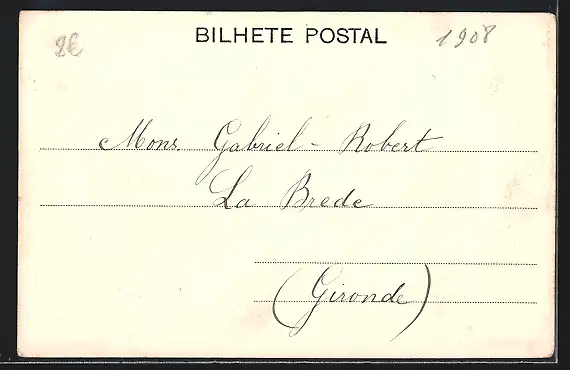 2€ BILHETE POSTAL 1908
Mons. Gabriel - Robert
La Brede
(Gironde)